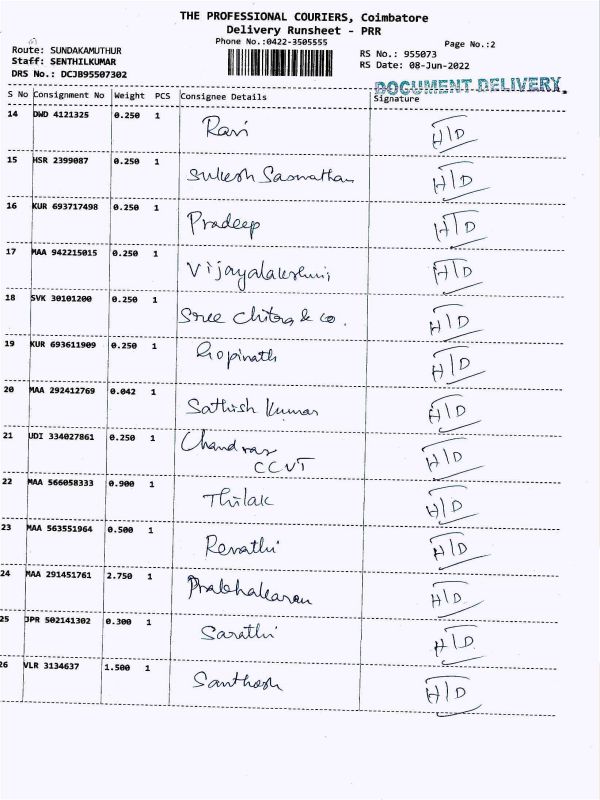 THE PROFESSIONAL COURIERS, Coimbatore
Delivery Runsheet - PRR
Phone No.:0422-3505555
Page No.:2
Route: SUNDAKAMUTHUR
Staff: SENTHILKUMAR
DRS No.: DCJB95507302
RS No.: 955073
RS Date: 08-Jun-2022
DOCUMENT DELIVERY.
S No Consignment No Weight PCS Consignee Details Signature
14 DWD 4121325 0.250 1 Ravi H/D
15 HSR 2399087 0.250 1 Sukesh H/D
16 KUR 693717498 0.250 1 Pradeep H/D
17 MAA 942215015 0.250 1 Vijayalakshmi H/D
18 SVK 30101200 0.250 1 Sree Chitra & Co. H/D
19 KUR 693611909 0.250 1 Gopinath H/D
20 MAA 292412769 0.042 1 Sathish Kumar H/D
21 UDI 334027861 0.250 1 Chandras H/D
CCVT
22 MAA 566058333 0.900 1 Thilak H/D
23 MAA 563551964 0.500 1 Revathi H/D
24 MAA 291451761 2.750 1 Prabhakaran H/D
25 JPR 502141302 0.300 1 Sarathi H/D
26 VLR 3134637 1.500 1 Santhosh H/D